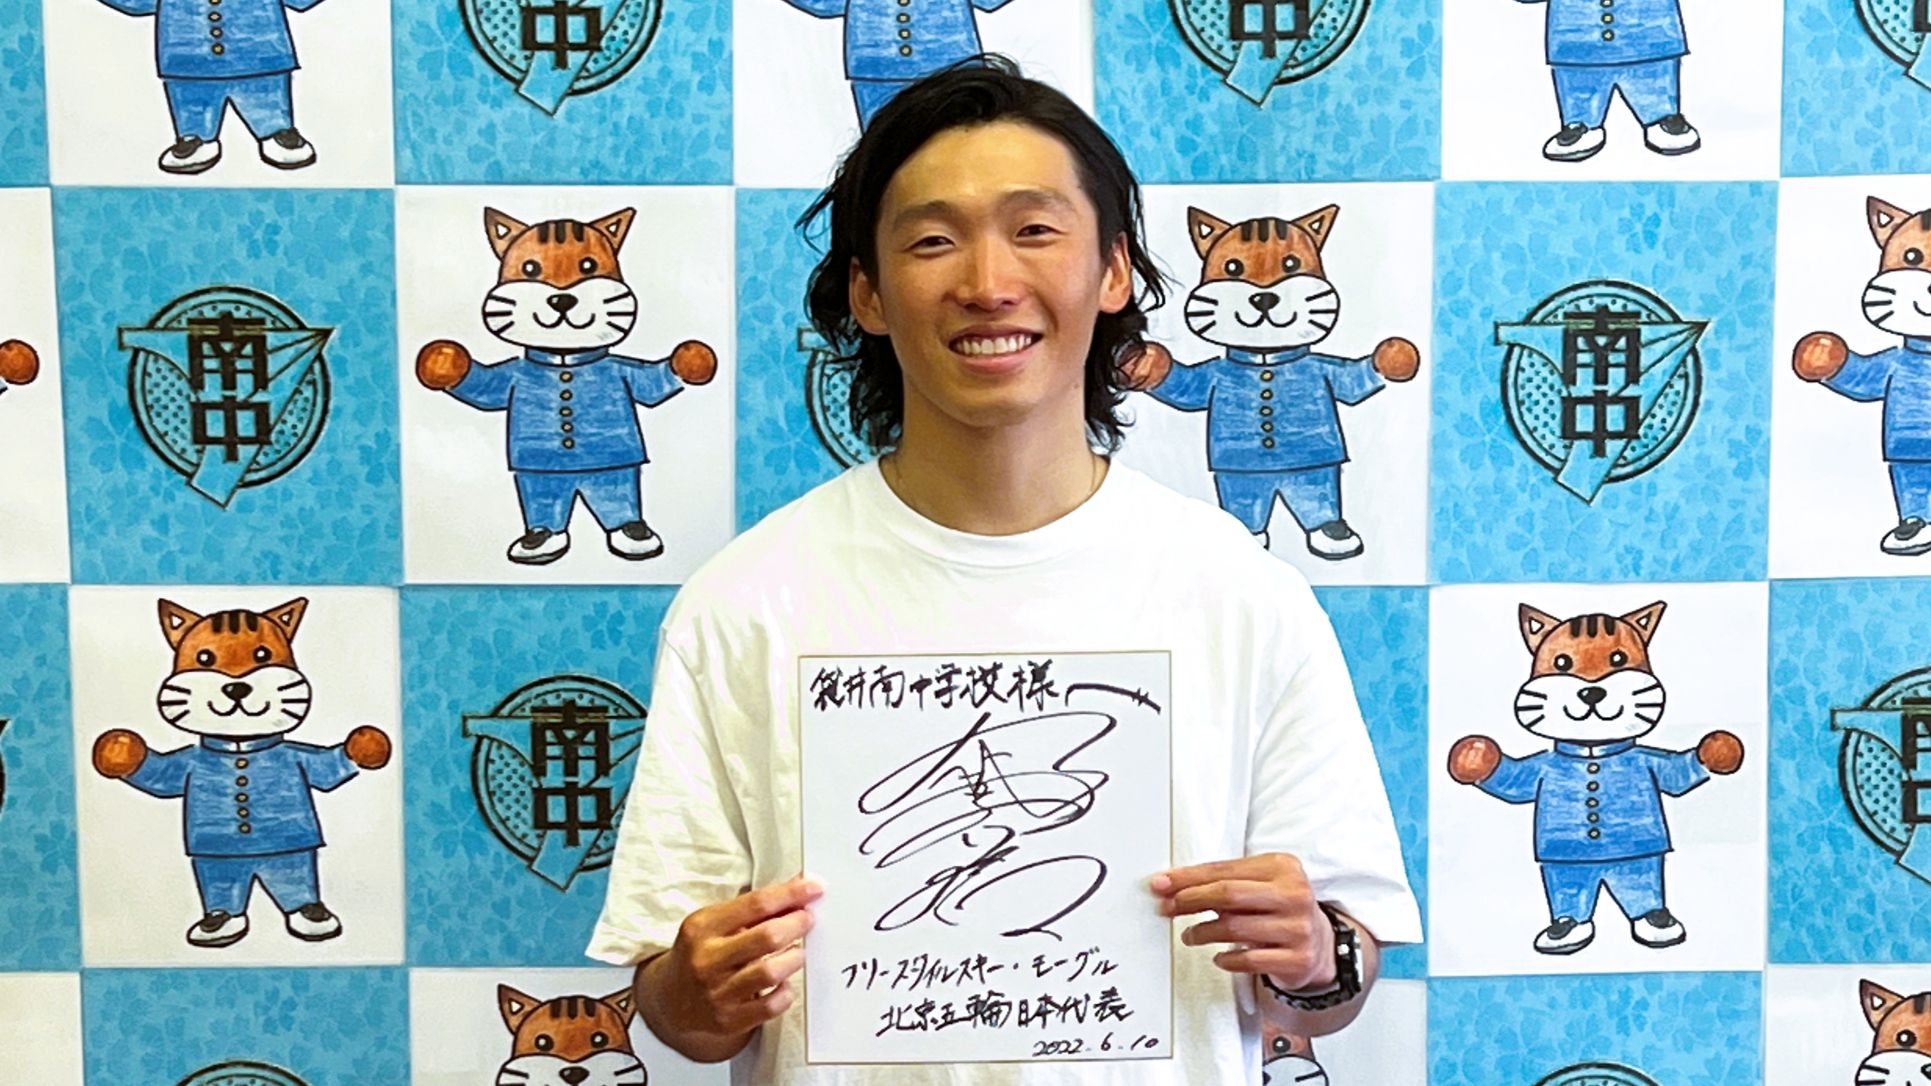 南中
南中
南中
南中
南中
袋井南中学校様へ
フリースタイルスキー・モーグル
北京五輪日本代表
2022.6.10